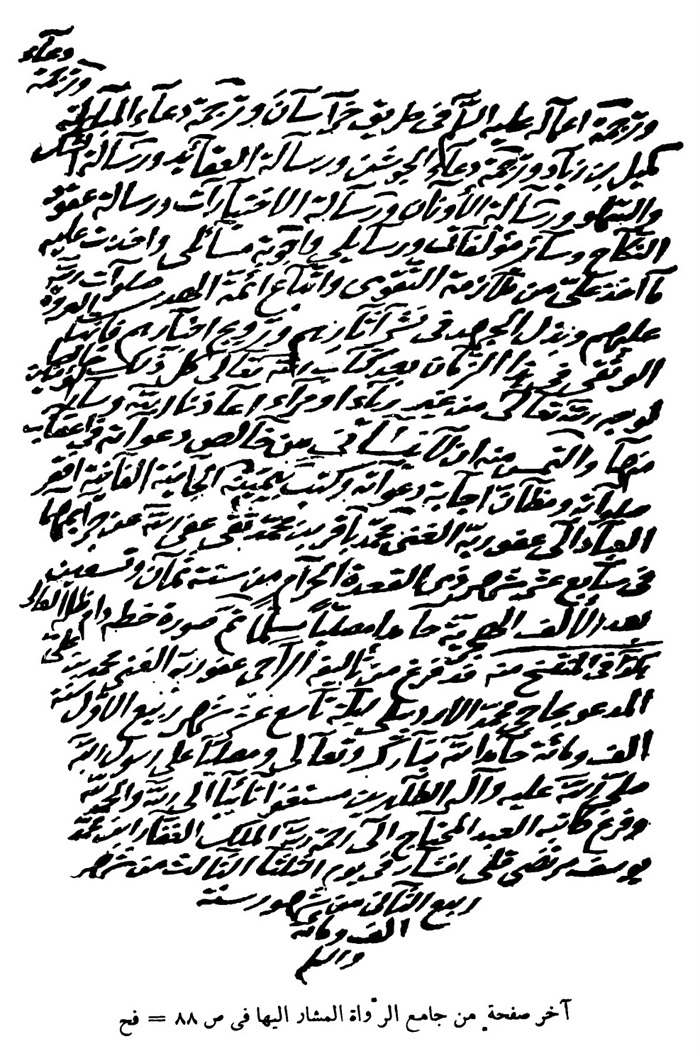 دعاء
وترجمة
وترجمة اعماله عليه السلام في طريق خراسان وترجمة دعاء المباهلة
كميل بن زياد وترجمة دعاء الجوشن ورسالة العقائد ورسالة الشكوك
والسهو ورسالة الأوزان ورسالة الاختيارات ورسالة عقود
النكاح وسائر مؤلفاتي ورسايلي واجوبة مسائلي واخذت عليه
ما اخذ علي من ملازمة التقوى واتباع ائمة الهدى صلوات الله
عليهم وبذل الجهد في نشر آثارهم وترويج اخبارهم فانها العروة
الوثقى في هذا الزمان بعد كتاب الله تعالى كل ذلك خالصا
لوجه الله تعالى من غير رياء او مراء اعاذنا الله وساير
منها والتمس منه ان لا ينساني من خالص دعواته في اعقاب
صلواته ومظان اجابة دعواته وكتب بيمينه الجانية الفانية افقر
العباد الى عفو ربه الغني محمد باقر بن محمد تقي عفى الله عن جرايمهما
في سابع عشر شهر ذي القعدة الحرام من سنة ثمان وتسعين
بعد الألف الهجرية حامدا مصليا مسلما تم صورة خطه دام ظله العالي
هكذا في المنتسخ منه قد فرغ من تأليفه الراجي عفو ربه الغني محمد بن علي
المدعو بحاجي محمد الاردبيلي ليلة تاسع عشر شهر ربيع الأول سنة
الف ومائة حامدا لله تبارك وتعالى ومصليا على رسول الله
صلى الله عليه وآله الطاهرين مستغفرا تائبا الى الله والحمد لله
وفرغ كاتبه العبد المحتاج الى رحمة الله الملك الغفار ابن محمد
يوسف مرتضى قلي افشار في يوم الثلثا الثالث من شهر
ربيع الثاني من شهور سنة
الف ومائة
والسلم
آخر صفحة من جامع الرّواة المشار اليها في ص ٨٨ = فح